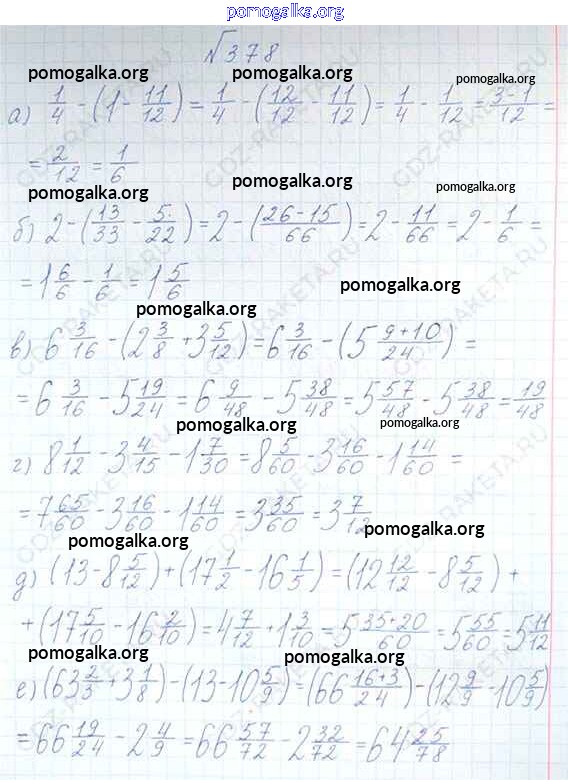 pomogalka.org
№378
pomogalka.org pomogalka.org pomogalka.org
а) 1/4 - (1 - 11/12) = 1/4 - (12/12 - 11/12) = 1/4 - 1/12 = 3-1/12 =
= 2/12 = 1/6
pomogalka.org pomogalka.org pomogalka.org
б) 2 - (13/33 - 5/22) = 2 - (26-15/66) = 2 - 11/66 = 2 - 1/6 =
= 1 6/6 - 1/6 = 1 5/6
pomogalka.org pomogalka.org
в) 6 3/16 - (2 3/8 + 3 5/12) = 6 3/16 - (5 9+10/24) =
= 6 3/16 - 5 19/24 = 6 9/48 - 5 38/48 = 5 57/48 - 5 38/48 = 19/48
pomogalka.org pomogalka.org
г) 8 1/12 - 3 4/15 - 1 7/30 = 8 5/60 - 3 16/60 - 1 14/60 =
= 7 65/60 - 3 16/60 - 1 14/60 = 3 35/60 = 3 7/12
pomogalka.org pomogalka.org
д) (13 - 8 5/12) + (17 1/2 - 16 1/5) = (12 12/12 - 8 5/12) +
+ (17 5/10 - 16 2/10) = 4 7/12 + 1 3/10 = 5 35+20/60 = 5 55/60 = 5 11/12
pomogalka.org pomogalka.org
е) (63 2/3 + 3 1/8) - (13 - 10 5/9) = (66 16+3/24) - (12 9/9 - 10 5/9)
= 66 19/24 - 2 4/9 = 66 57/72 - 2 32/72 = 64 25/78
pomogalka.org
GDZ-RAKETA.RU